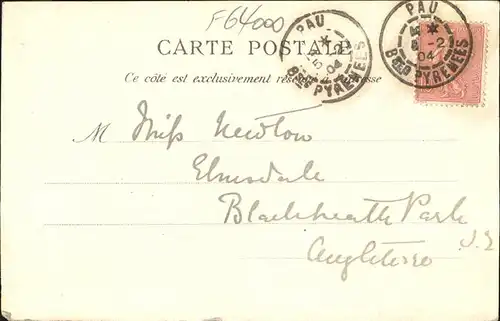 F64000
CARTE POSTALE
Ce côté est exclusivement réservé à l'adresse
PAU
5 -2
04
Bses PYRENEES
PAU
-2
04
Bses PYRENEES
M Miss Newton
Elmsdale
Blackheath Park
S.E
Angleterre